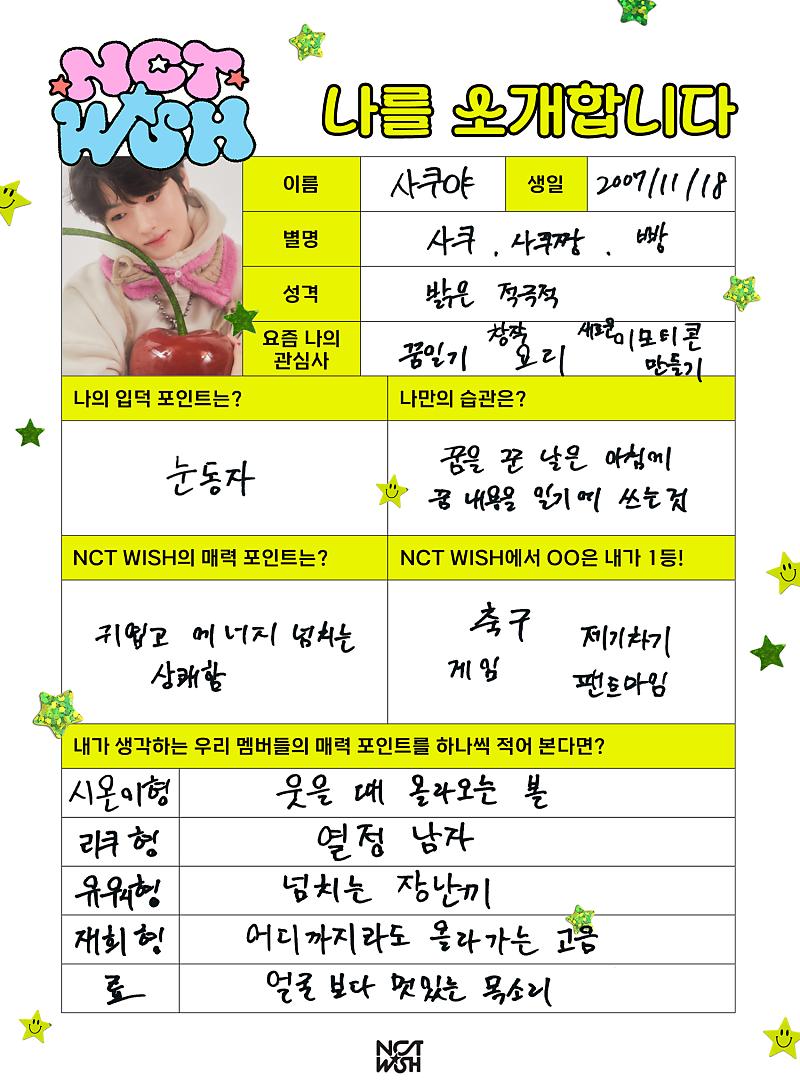 NCT
WISH
나를 소개합니다
이름 사쿠야 생일 2007/11/18
별명 사쿠, 사쿠짱, 빵
성격 밝은 적극적
요즘 나의
관심사
꿈일기 창작 요리 새로운 이모티콘
만들기
나의 입덕 포인트는?
눈동자
나만의 습관은?
꿈을 꾼 날은 아침에
꿈 내용을 일기에 쓰는 것
NCT WISH의 매력 포인트는?
귀엽고 에너지 넘치는
상쾌함
NCT WISH에서 OO은 내가 1등!
축구 제기차기
게임 팬트마임
내가 생각하는 우리 멤버들의 매력 포인트를 하나씩 적어 본다면?
시온이형 웃을 때 올라오는 볼
리쿠형 열정 남자
유우시형 넘치는 장난끼
재희형 어디까지라도 올라가는 고음
료 얼굴보다 멋있는 목소리
NCT
WISH